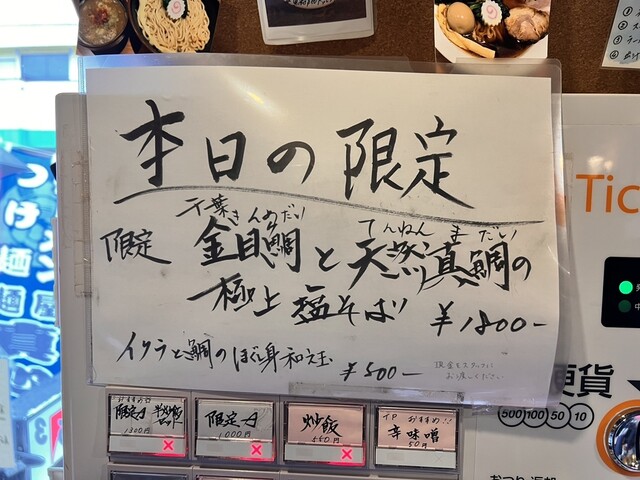 本日の限定
千葉きんめだい てんねんまだい
限定 金目鯛と天然真鯛の
極上塩そば ¥1800-
イクラと鯛のほぐし身和え玉 ¥500-
現金をスタッフに
お渡しください
Tic
硬貨
500 100 50 10
つけ麺
麺屋
おすすめ
限定 1300円
限定 1000円
炒飯 550円
TP おすすめ!!
辛味噌 50円